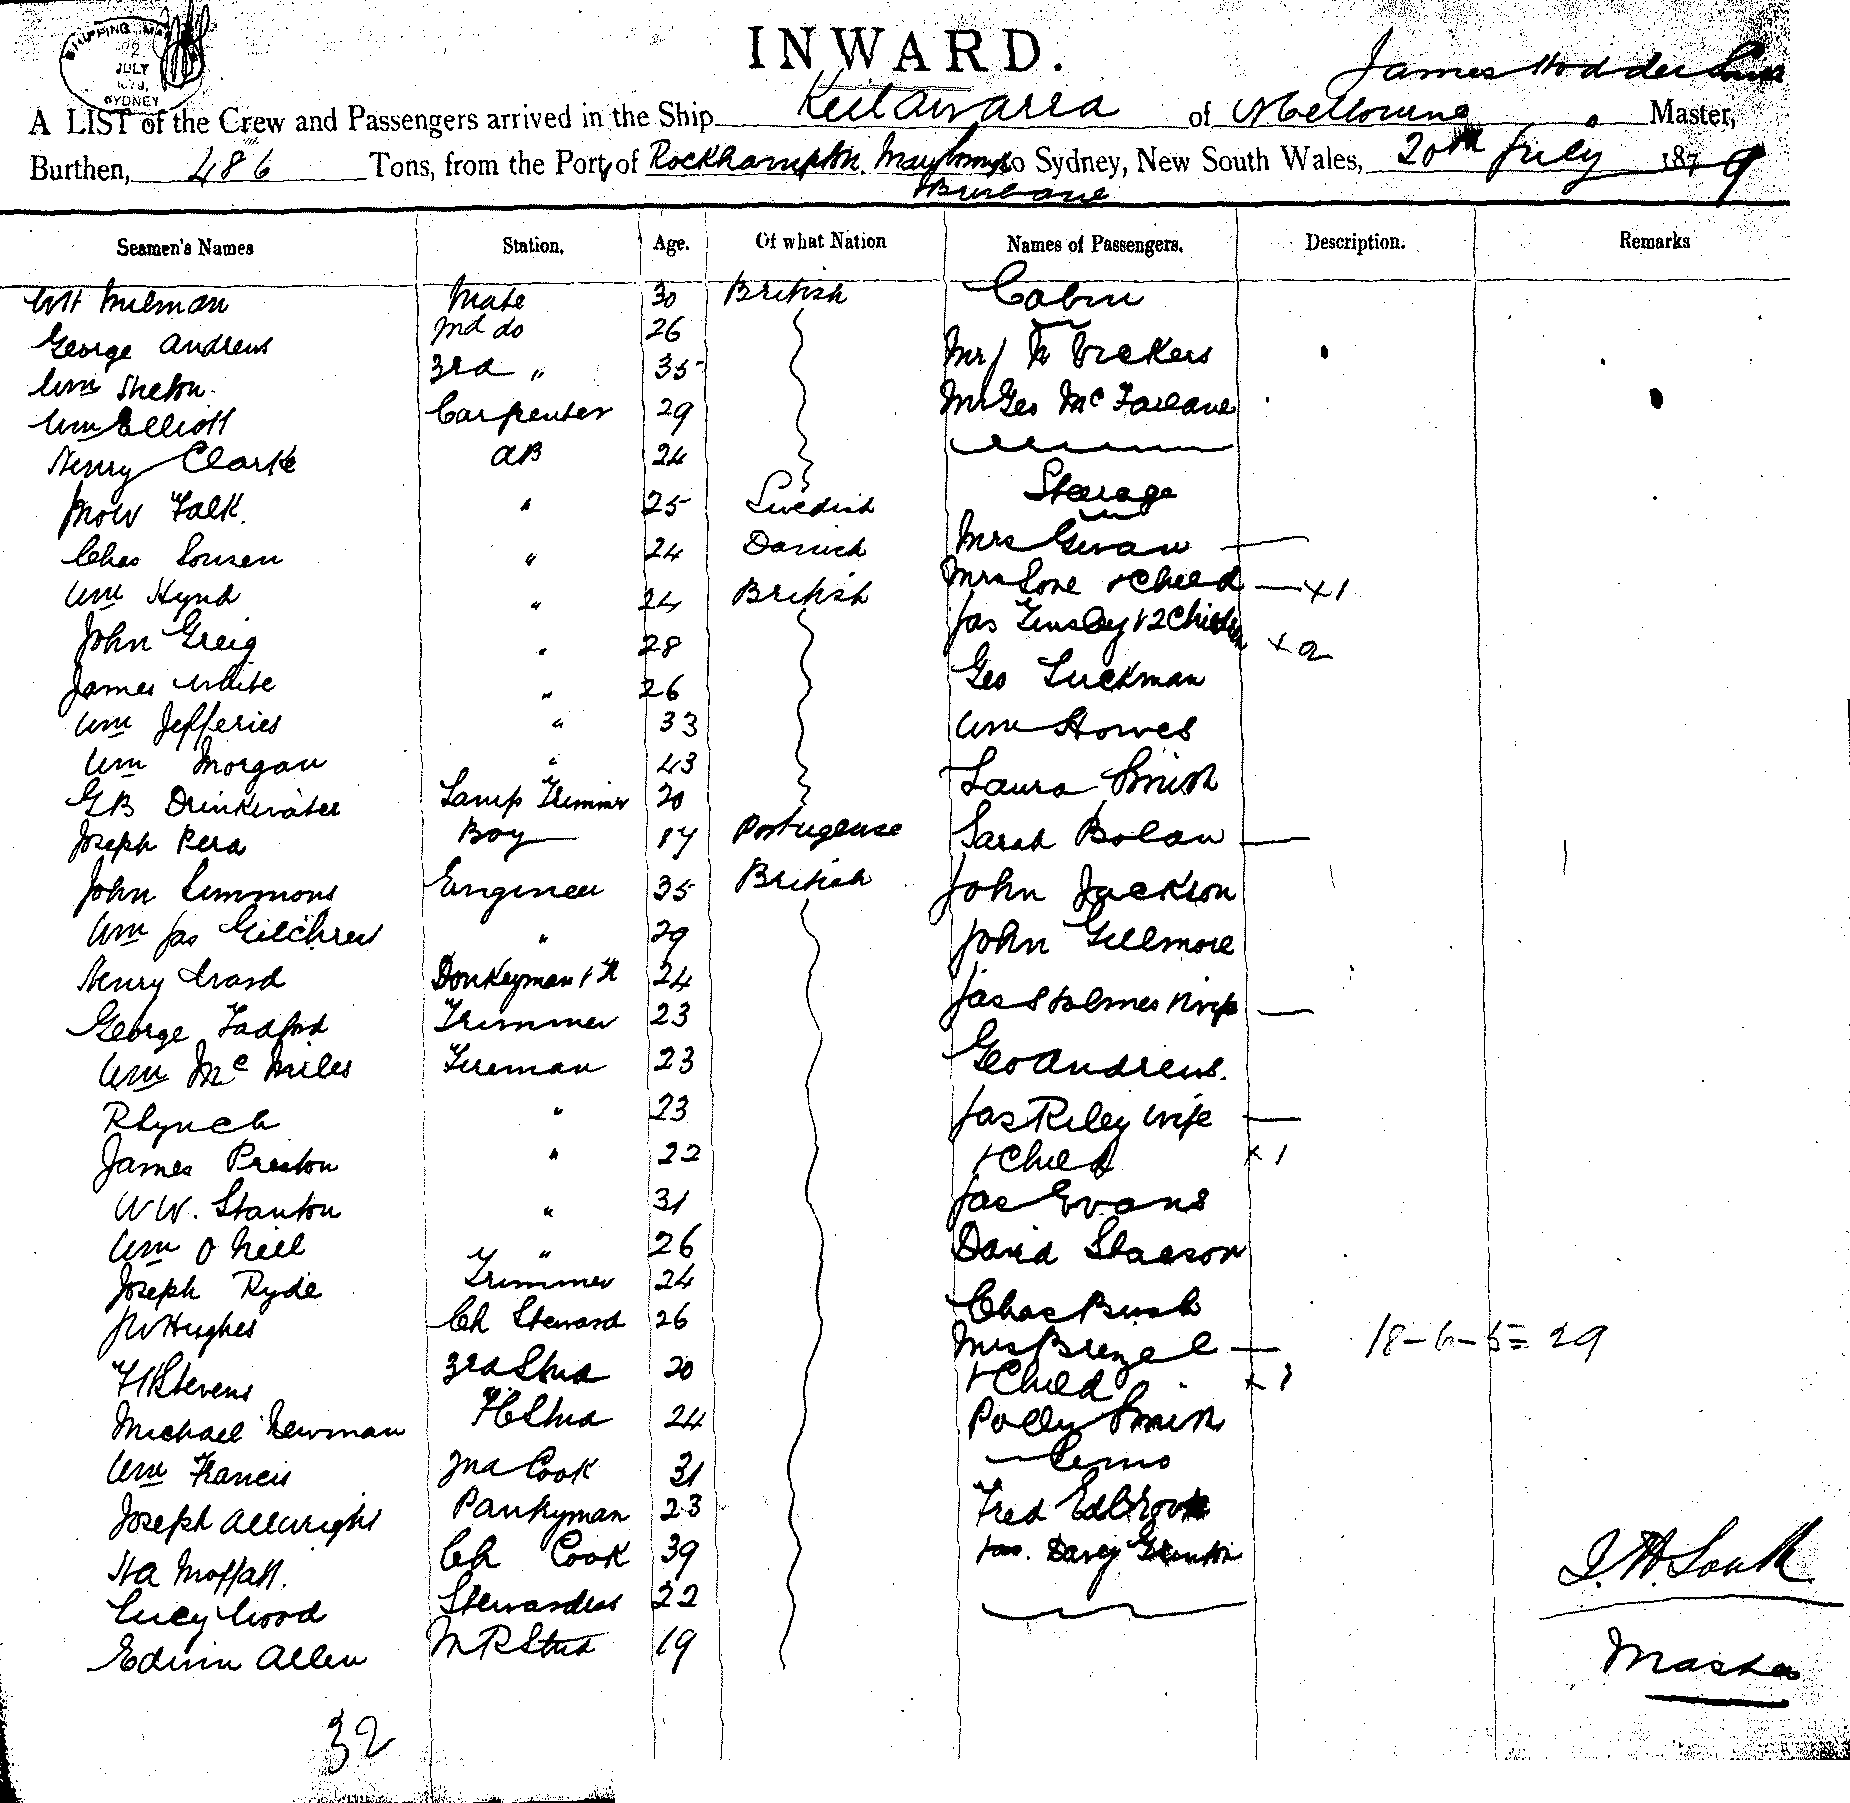 SHIPPING MA
JULY
SYDNEY
INWARD.
James Hodder
A LIST of the Crew and Passengers arrived in the Ship Keilawarra of Melbourne Master,
Burthen, 486 Tons, from the Port, of Rockhampton. Maryboro to Sydney, New South Wales, 20th July 1879
Brisbane
Seamen's Names Station. Age. Of what Nation Names of Passengers. Description. Remarks
WH Milman Mate 30 British Cabin
George Andrews 2nd do 26
Wm Shelton 3rd " 35 Mr Vickers
Wm Elliott Carpenter 29 Mr Geo McFarlane
Henry Clarke AB 24
Falk. " 25 Swedish Steerage
Chas Sonsen " 24 Danish Mrs Girvan —
Wm Hynd " 24 British Mrs Love + Child — x1
John Greig " 28 Jas Tinsley + 2 Children x 2
James White " 26 Geo Luckman
Wm Jefferies " 33 Wm Howes
Wm Morgan " 43 Laura Smith
GB Drinkwater Lamp Trimmer 20
Joseph Pera Boy 17 Portugeuse Sarah Bolan —
John Simmons Engineer 35 British John Jackson
Wm Jas Gilchrist " 29 John Gillmore
Henry Ward Donkeyman 24 Jas Holmes wife —
George Tadford Trimmer 23
Wm McMiles Fireman 23 Geo Andrews.
R Lynch " 23 Jas Riley wife —
James Preston " 22 + Child x 1
WW. Stanton " 31 Jas Evans
Wm O Neil " 26 David
Joseph Ryde Trimmer 24
JW Hughes Ch Steward 26 Chas Bush
Mrs — 18-6-5= 29
Stevens 3rd Stwd 20 + Child x 1
Michael Newman Stwd 24 Polly Smith
Wm Francis 2nd Cook 31
Joseph Allwright Pantryman 23 Fred Edbrook
HA Moffatt. Ch Cook 39 Jas. Davey
Lucy Wood Stewardess 22
Edwin Allen MR Stwd 19
Master
32